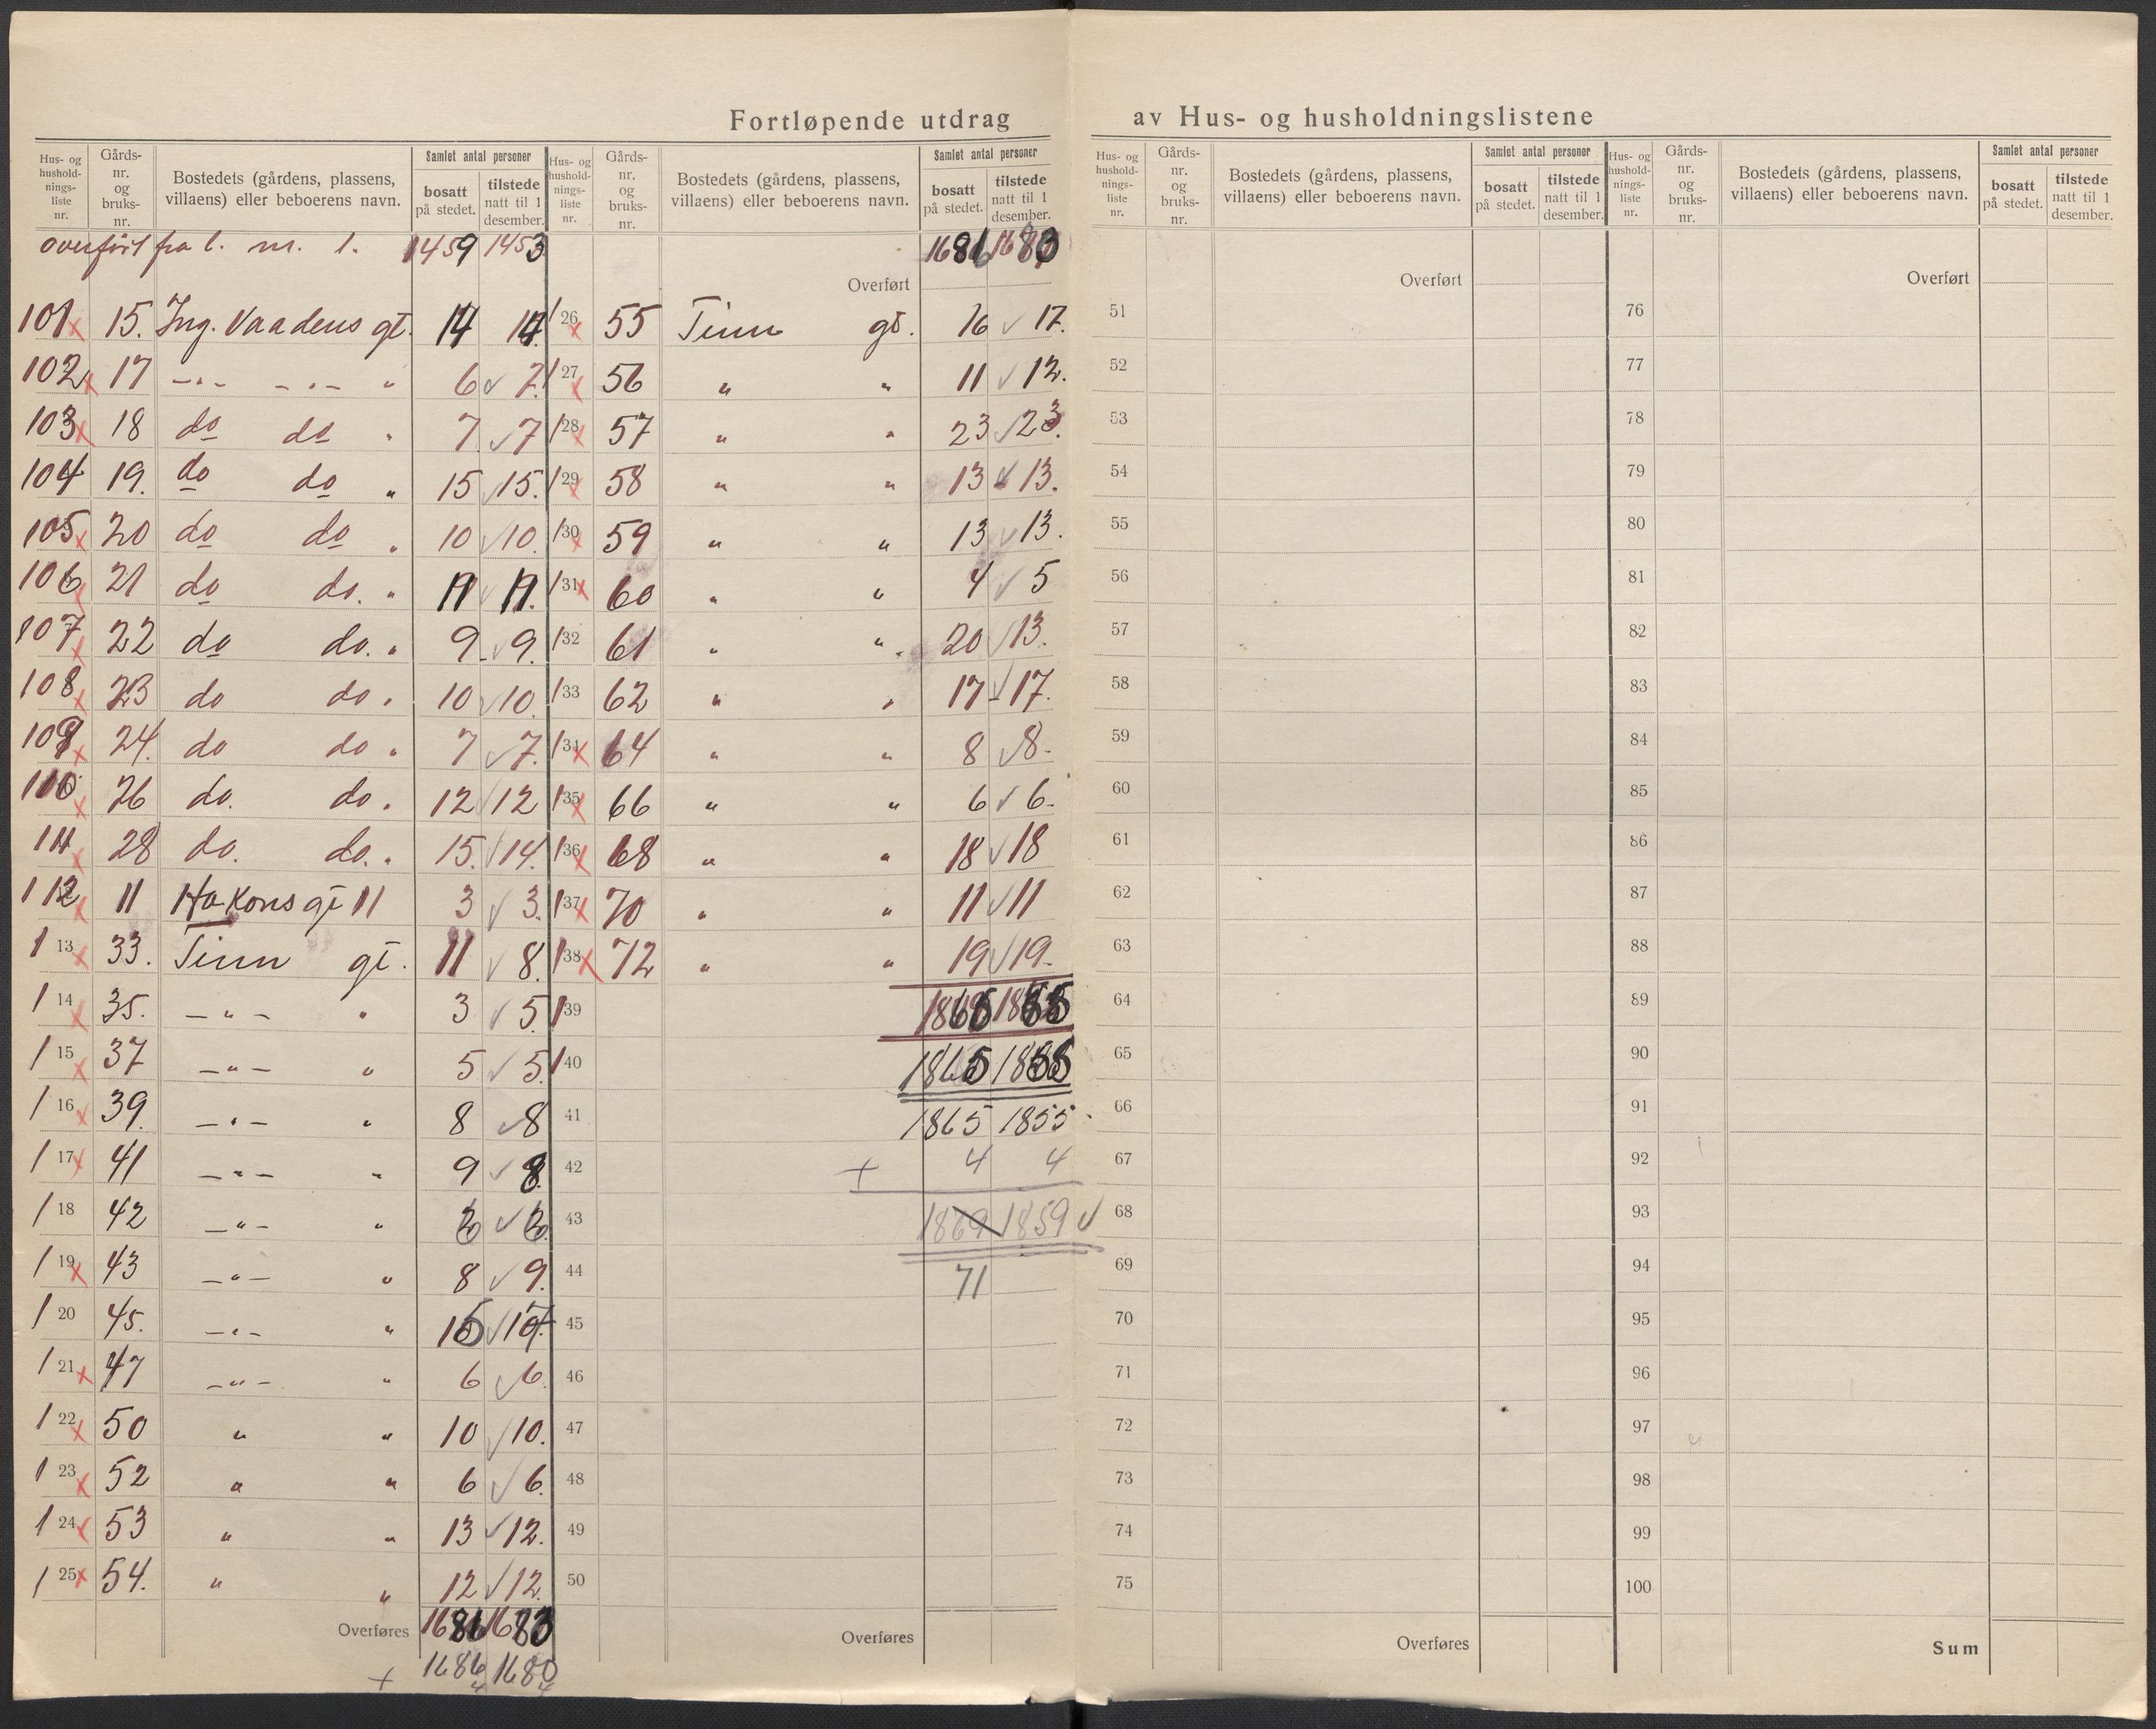 Fortløpende utdrag av Hus- og husholdningslistene
Hus- og hushold-nings-liste nr. Gårds-nr. og bruks-nr. Bostedets (gårdens, plassens, villaens) eller beboerens navn. Samlet antal personer bosatt på stedet. tilstede natt til 1 desember.
overført fra l. nr. 1. 1459 1453
101 15. Ing. Vaadens gt. 14 14.
102 17 -"- -"- " 6 7.
103 18 do do " 7 7
104 19. do do " 15 15.
105 20 do do " 10 10.
106 21 do do. " 11 11.
107 22 do do. " 9 9.
108 23 do do. 10 10.
109 24. do do " 7 7.
110 26 do. do. 12 12
111 28 do. do. " 15. 14.
112 11 Hakons gt 11 3 3.
113 33. Tinn gt. 11 8.
114 35. -"- " 3 5.
115 37 -"- " 5 5.
116 39. -"- " 8 8
117 41 -"- " 9 8
118 42 -"- "
119 43 -"- " 8 9.
120 45. -"- "
121 47 -"- " 6 6.
122 50 " " 10 10.
123 52 " " 6 6.
124 53 " " 13 12.
125 54. " " 12 12.
Overføres 1686 1683
+ 1686 1680
4 4
Hus- og hushold-nings-liste nr. Gårds-nr. og bruks-nr. Bostedets (gårdens, plassens, villaens) eller beboerens navn. Samlet antal personer bosatt på stedet. tilstede natt til 1 desember.
Overført 1686 1680
126 55 Tinn gt. 16 17.
127 56 " " 11 12.
128 57 " " 23 23.
129 58 " " 13 13.
130 59 " " 13 13.
131 60 " " 4 5
132 61 " " 20 13.
133 62 " " 17 17.
134 64 " " 8 8.
135 66 " " 6 6.
136 68 " " 18 18
137 70 " " 11 11
138 72 " " 19 19.
139 1865 1855
140 1865 1855
41 1865 1855
42 + 4 4
43 1869 1859
44 71
45
46
47
48
49
50
Overføres
Hus- og hushold-nings-liste nr. Gårds-nr. og bruks-nr. Bostedets (gårdens, plassens, villaens) eller beboerens navn. Samlet antal personer bosatt på stedet. tilstede natt til 1 desember.
Overført
51
52
53
54
55
56
57
58
59
60
61
62
63
64
65
66
67
68
69
70
71
72
73
74
75
Overføres
Hus- og hushold-nings-liste nr. Gårds-nr. og bruks-nr. Bostedets (gårdens, plassens, villaens) eller beboerens navn. Samlet antal personer bosatt på stedet. tilstede natt til 1 desember.
Overført
76
77
78
79
80
81
82
83
84
85
86
87
88
89
90
91
92
93
94
95
96
97
98
99
100
Sum